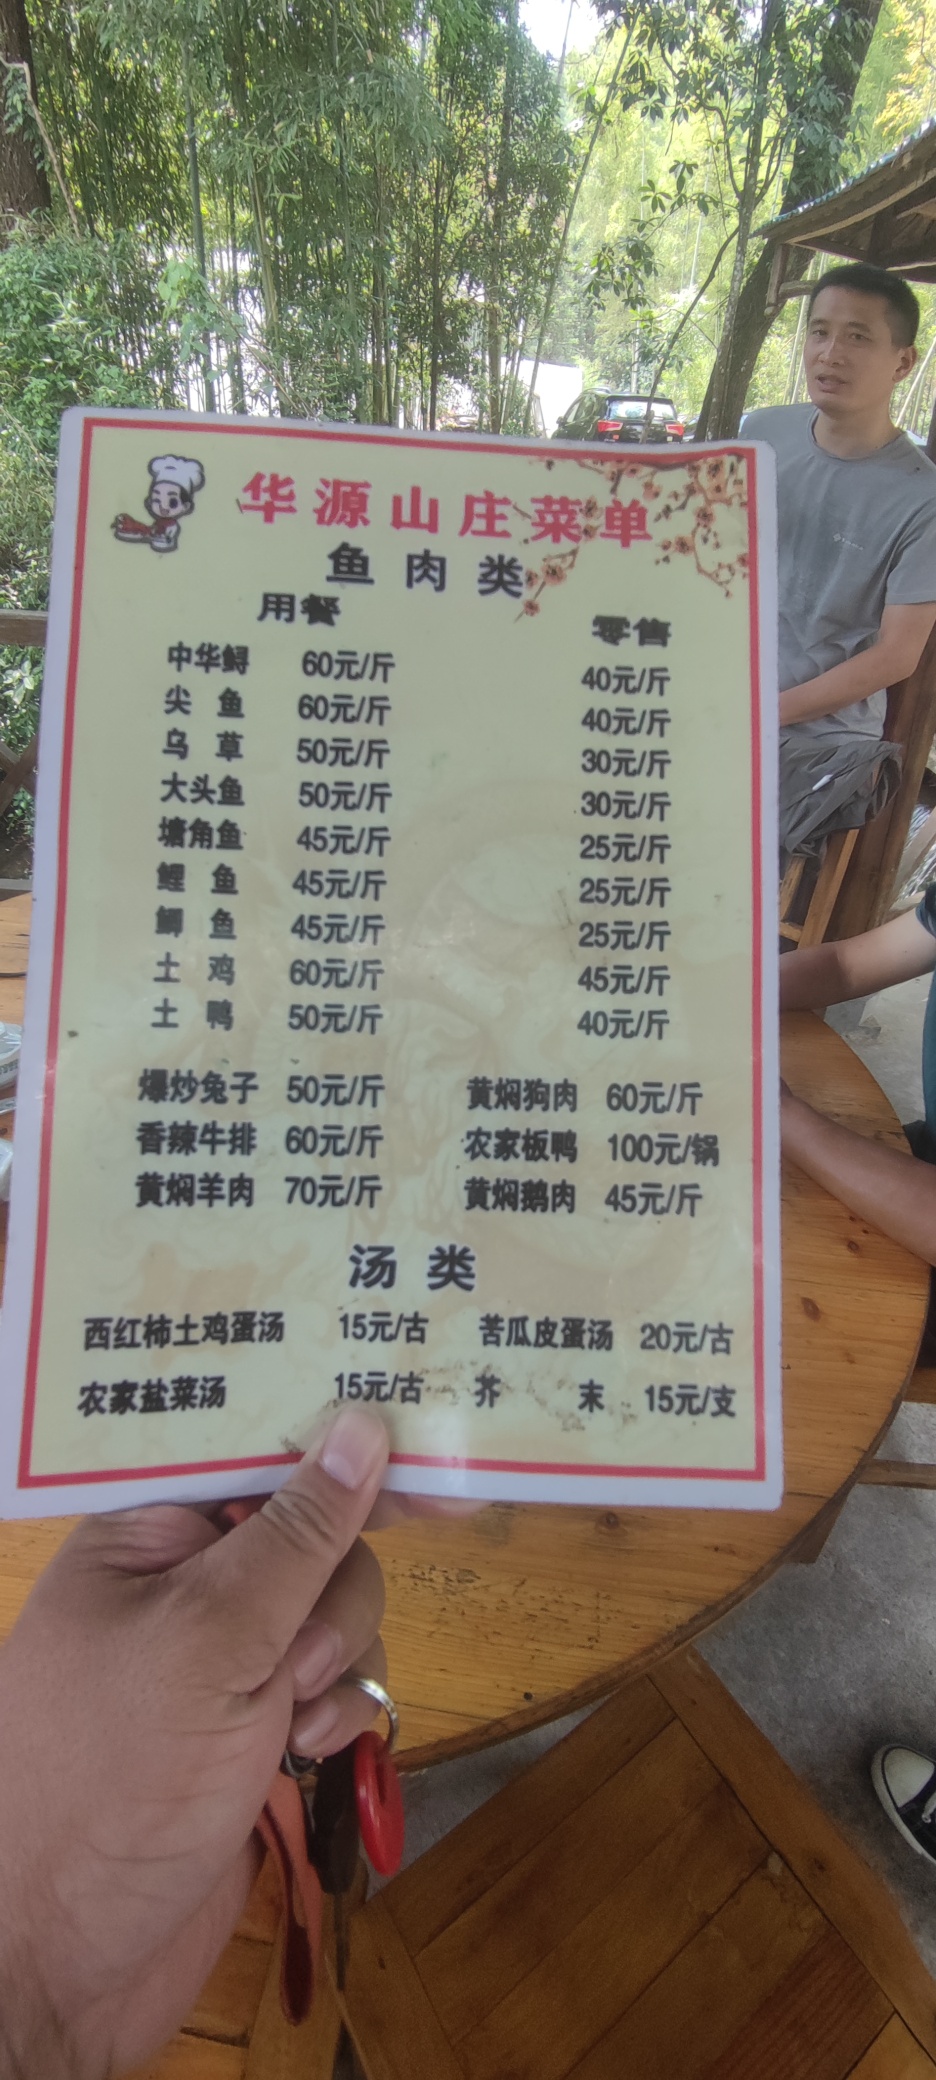 华源山庄菜单
鱼肉类
用餐 零售
中华鲟 60元/斤 40元/斤
尖鱼 60元/斤 40元/斤
乌草 50元/斤 30元/斤
大头鱼 50元/斤 30元/斤
塘角鱼 45元/斤 25元/斤
鲤鱼 45元/斤 25元/斤
鲫鱼 45元/斤 25元/斤
土鸡 60元/斤 45元/斤
土鸭 50元/斤 40元/斤
爆炒兔子 50元/斤 黄焖狗肉 60元/斤
香辣牛排 60元/斤 农家板鸭 100元/锅
黄焖羊肉 70元/斤 黄焖鹅肉 45元/斤
汤类
西红柿土鸡蛋汤 15元/古 苦瓜皮蛋汤 20元/古
农家盐菜汤 15元/古 芥末 15元/支